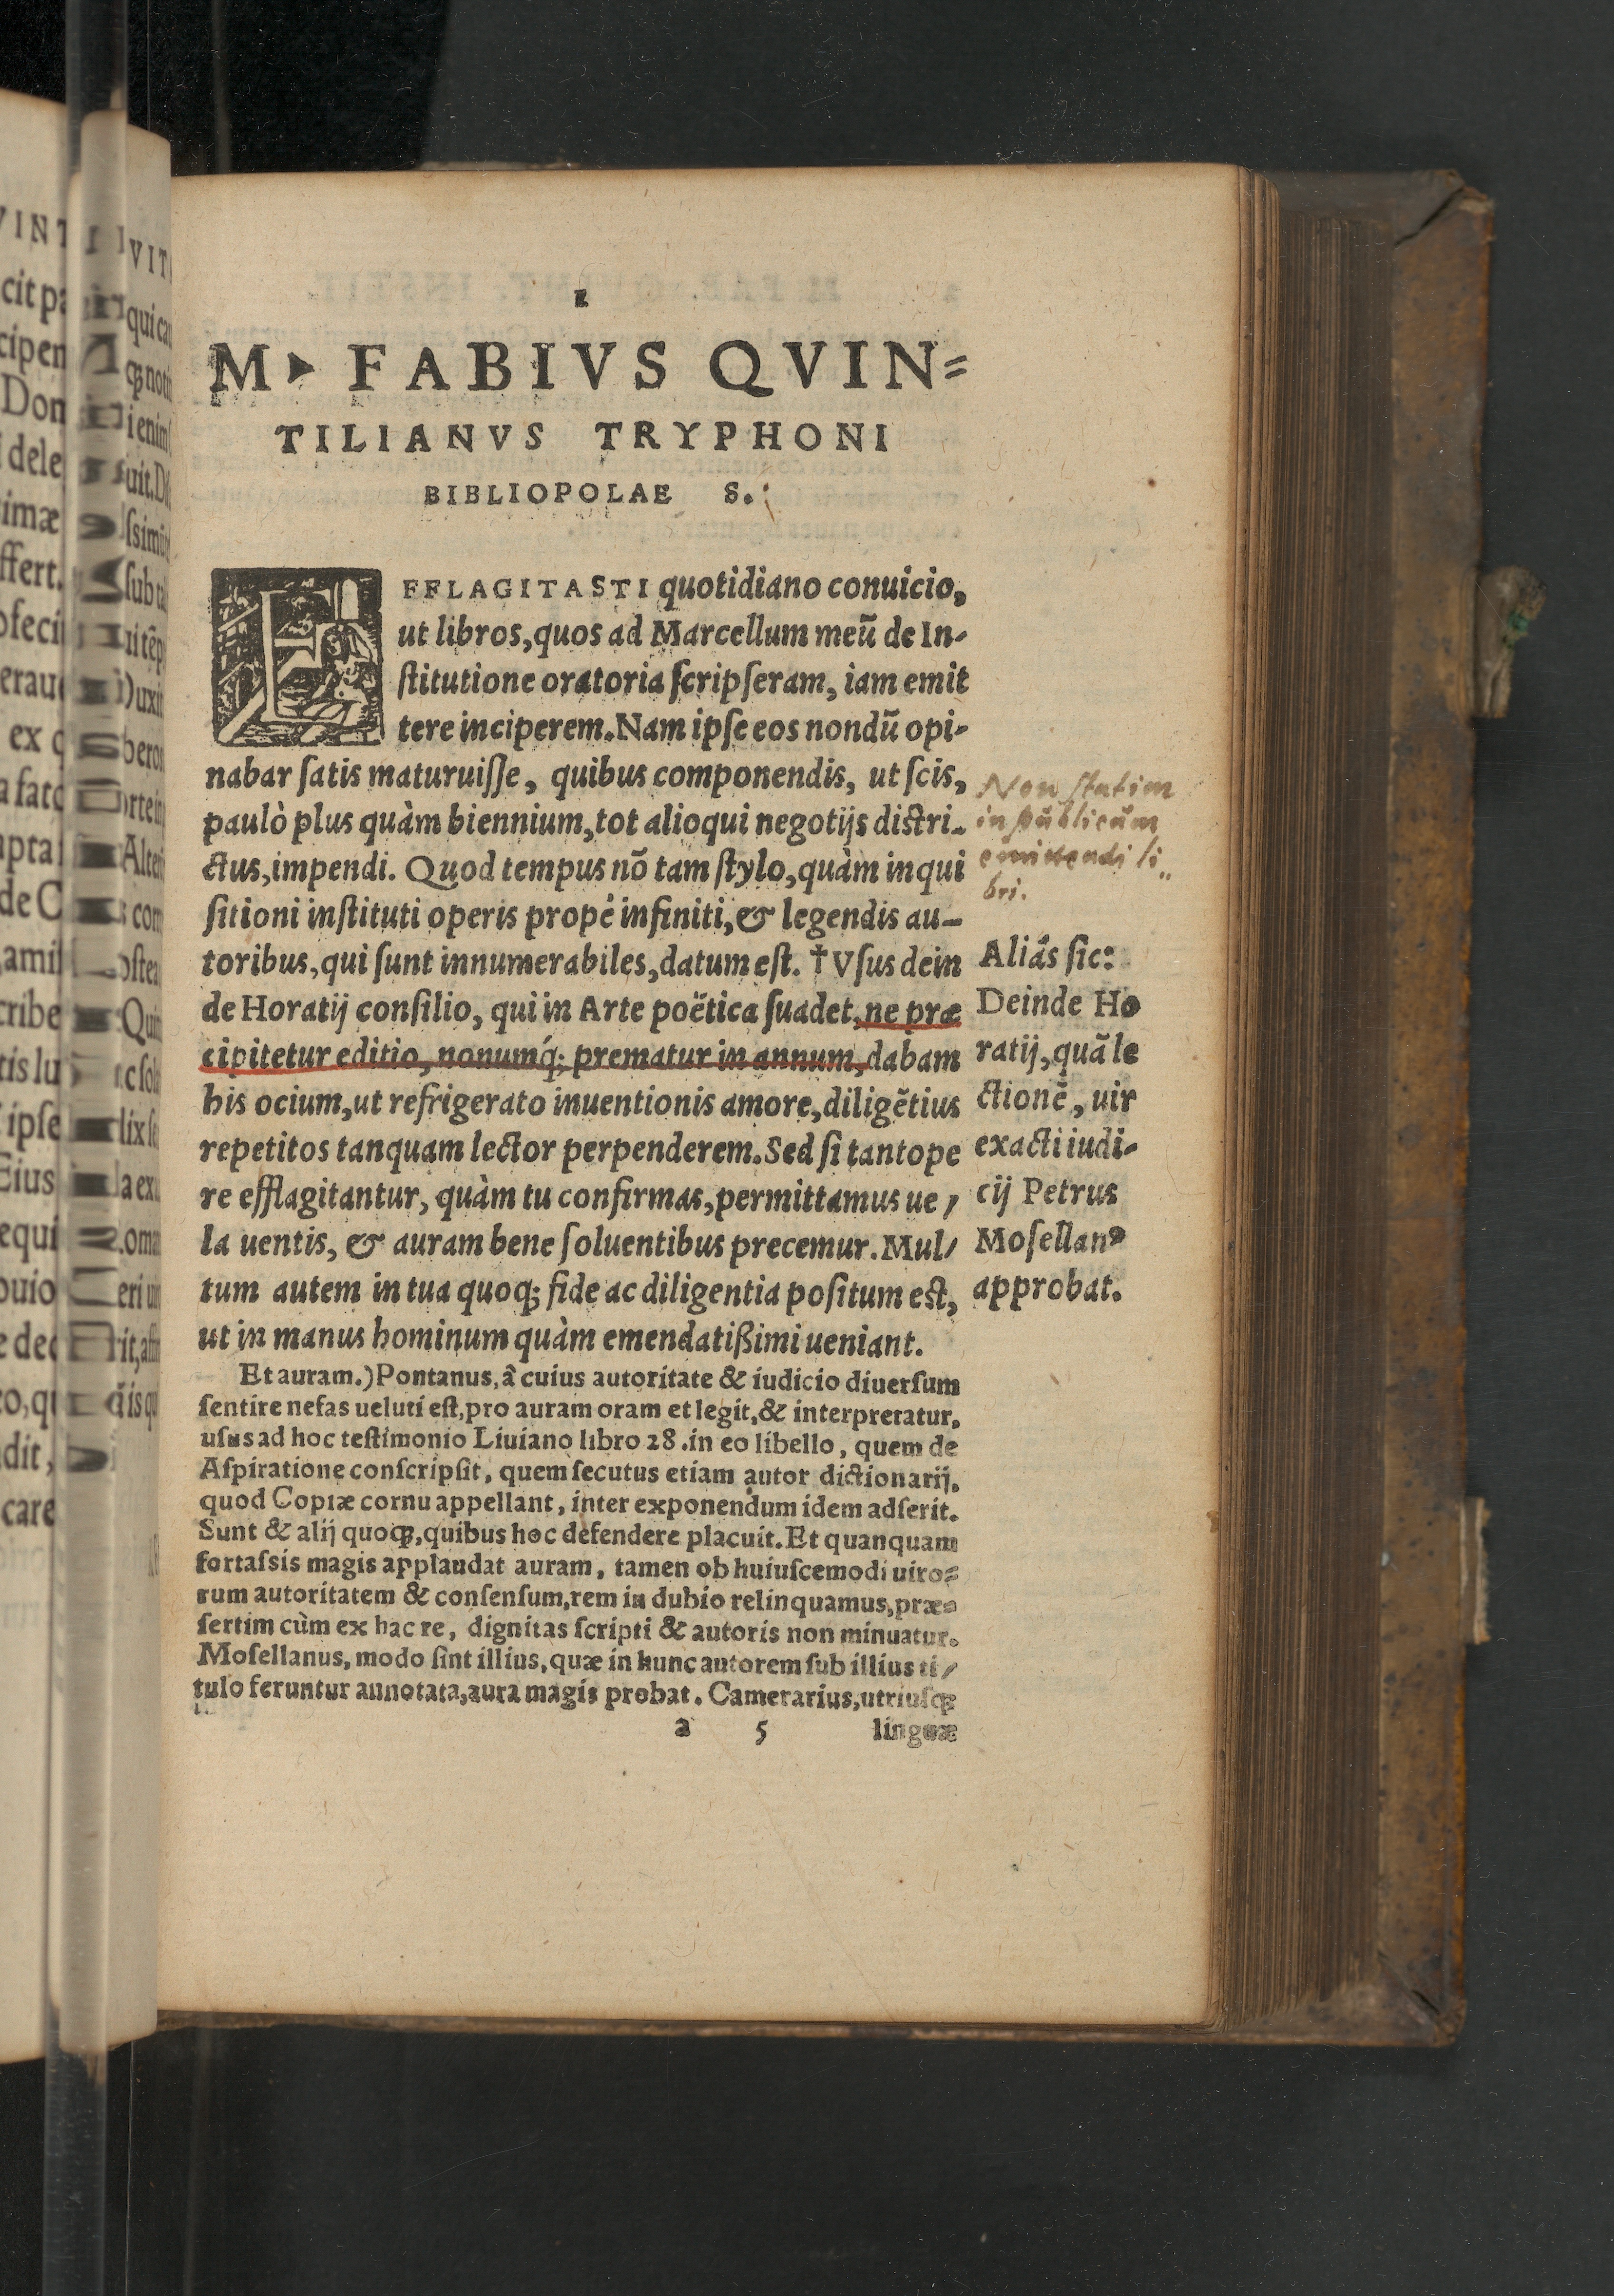 1
M. FABIVS QVIN=
TILIANVS TRYPHONI
BIBLIOPOLAE S.
EFFLAGITASTI quotidiano conuicio,
ut libros, quos ad Marcellum meũ de In-
ſtitutione oratoria ſcripſeram, iam emit
tere inciperem. Nam ipſe eos nondũ opi-
nabar ſatis maturuiſſe, quibus componendis, ut ſcis,
paulò plus quàm biennium, tot alioqui negotijs diſtri-
ctus, impendi. Quod tempus nõ tam ſtylo, quàm inqui
ſitioni inſtituti operis propè infiniti, & legendis au-
toribus, qui ſunt innumerabiles, datum eſt. †Vſus dein
de Horatij conſilio, qui in Arte poëtica ſuadet, ne præ
cipitetur editio, nonumq́; prematur in annum, dabam
his ocium, ut refrigerato inuentionis amore, diligẽtius
repetitos tanquam lector perpenderem. Sed ſi tantope
re efflagitantur, quàm tu confirmas, permittamus ue/
la uentis, & auram bene ſoluentibus precemur. Mul/
tum autem in tua quoq; fide ac diligentia poſitum eſt,
ut in manus hominum quàm emendatißimi ueniant.
Non ſtatim
in publicum
emittendi li
bri.
Aliâs ſic:
Deinde Ho
ratij, quã le
ctionẽ, uir
exacti iudi-
cij Petrus
Moſellanꝰ
approbat.
Et auram.) Pontanus, â cuius autoritate & iudicio diuerſum
ſentire nefas ueluti eſt, pro auram oram et legit, & interpretatur,
uſus ad hoc teſtimonio Liuiano libro 28. in eo libello, quem de
Aſpiratione conſcripſit, quem ſecutus etiam autor dictionarij,
quod Copiæ cornu appellant, inter exponendum idem adſerit.
Sunt & alij quoqꝫ, quibus hoc defendere placuit. Et quanquam
fortaſsis magis applaudat auram, tamen ob huiuſcemodi uiro=
rum autoritatem & conſenſum, rem in dubio relinquamus, præ=
ſertim cùm ex hac re, dignitas ſcripti & autoris non minuatur.
Moſellanus, modo ſint illius, quæ in hunc autorem ſub illius ti/
tulo feruntur annotata, aura magis probat. Camerarius, utriuſqꝫ
a 5 linguæ